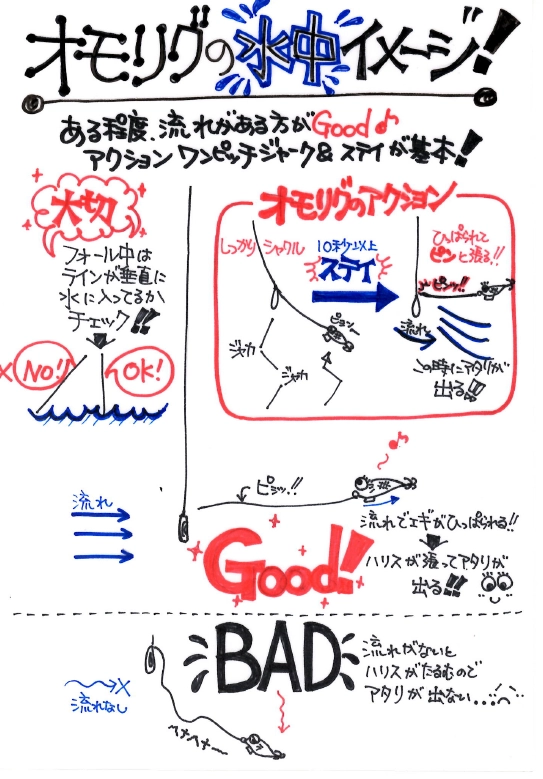 オモリグの水中イメージ!
ある程度、流れがある方がGood♪
アクション ワンピッチジャーク&ステイが基本!
大切
フォール中は
ラインが垂直に
水に入ってるか
チェック!!
× NO!!
OK!
オモリグのアクション
しっかりシャクル
10秒以上
ステイ
ひっぱられて
ピンと張る!!
ピンッ!!
ピョン
流れ
ジャカ
ジャカ
この時にアタリが
出る!!
流れ
ピシッ!!
流れでエギがひっぱられる!!
ハリスが張ってアタリが
出る!!
Good!!
BAD
流れがないと
ハリスがたるむので
アタリが出ない...
×
流れなし